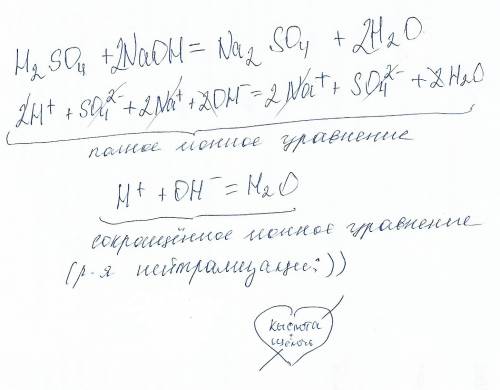 H₂SO₄ + 2NaOH = Na₂SO₄ + 2H₂O
2H⁺ + SO₄²⁻ + 2Na⁺ + 2OH⁻ = 2Na⁺ + SO₄²⁻ + 2H₂O
полное ионное уравнение
H⁺ + OH⁻ = H₂O
сокращённое ионное уравнение
(р-я нейтрализации:))
кислота
+
щёлочь